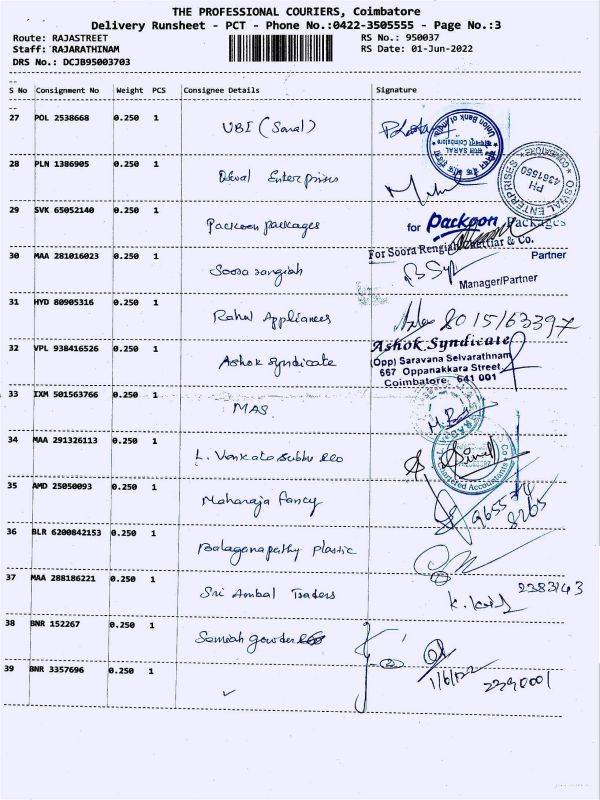 THE PROFESSIONAL COURIERS, Coimbatore
Delivery Runsheet - PCT - Phone No.:0422-3505555 - Page No.:3
Route: RAJASTREET
RS No.: 950037
Staff: RAJARATHINAM
RS Date: 01-Jun-2022
DRS No.: DCJB95003703
S No Consignment No Weight PCS Consignee Details Signature
27 POL 2538668 0.250 1 UBI (Saral)
Union Bank of India
28 PLN 1386905 0.250 1 Enterprises
OSWAL ENTERPRISES
COIMBATORE
PH 4381550
29 SVK 65052140 0.250 1 Packoon packages
for Packoon Packages
Partner
30 MAA 281016023 0.250 1 Soora rangiah
For Soora Rengiah Chettiar & Co.
Manager/Partner
31 HYD 80905316 0.250 1 Rahul Appliances
8015163397
32 VPL 938416526 0.250 1 Ashok syndicate
Ashok Syndicate
(Opp) Saravana Selvarathnam
667 Oppanakkara Street,
Coimbatore 641 001
33 IXM 501563766 0.250 1 MAS
34 MAA 291326113 0.250 1 L. Venkata Subbu
Chartered Accountants
35 AMD 25050093 0.250 1 Maharaja fancy
36 BLR 6200842153 0.250 1 Balaganapathy plastic
37 MAA 288186221 0.250 1 Sri Ambal Traders
2383143
38 BNR 152267 0.250 1 Samiah gowder
39 BNR 3357696 0.250 1
1/6/22
2390001